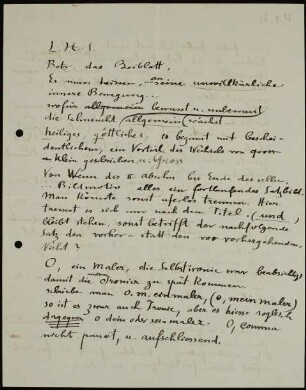 16.9.31
L. H. S.
Betr. das Beiblatt.
Es muss heissen, an seine unwillkürliche
innere Bewegung.
wofür allgemein bewusst u. unbewusst
die Sehnsucht (allgemein) wächst
heiliges göttliches, so beginnt mit
ein Vorteil des Wechsels von gross
u klein geschrieben u. gross
Von Wenn des abschn bis Ende desselben,
... alles ein fortlaufendes Satzbild.
Man könnte sonst uferlos trennen. Hier
trennt es sich nur nach dem Titel. (und,
bleibt stehen, sonst betrifft der nachfolgende
Satz den vorher- statt den vorhergehenden.
Nicht?
O, ein maler, die Selbstironie war beabsichtigt
damit die Ironie zu spät kommen.
schriebe man O. m. ein maler, (O, mein maler)
so ist es zwar auch Ironie, aber es hiesse sogleich
dagegen O dein oder sea maler. O, comma
nicht punct, u. aufschliessend.